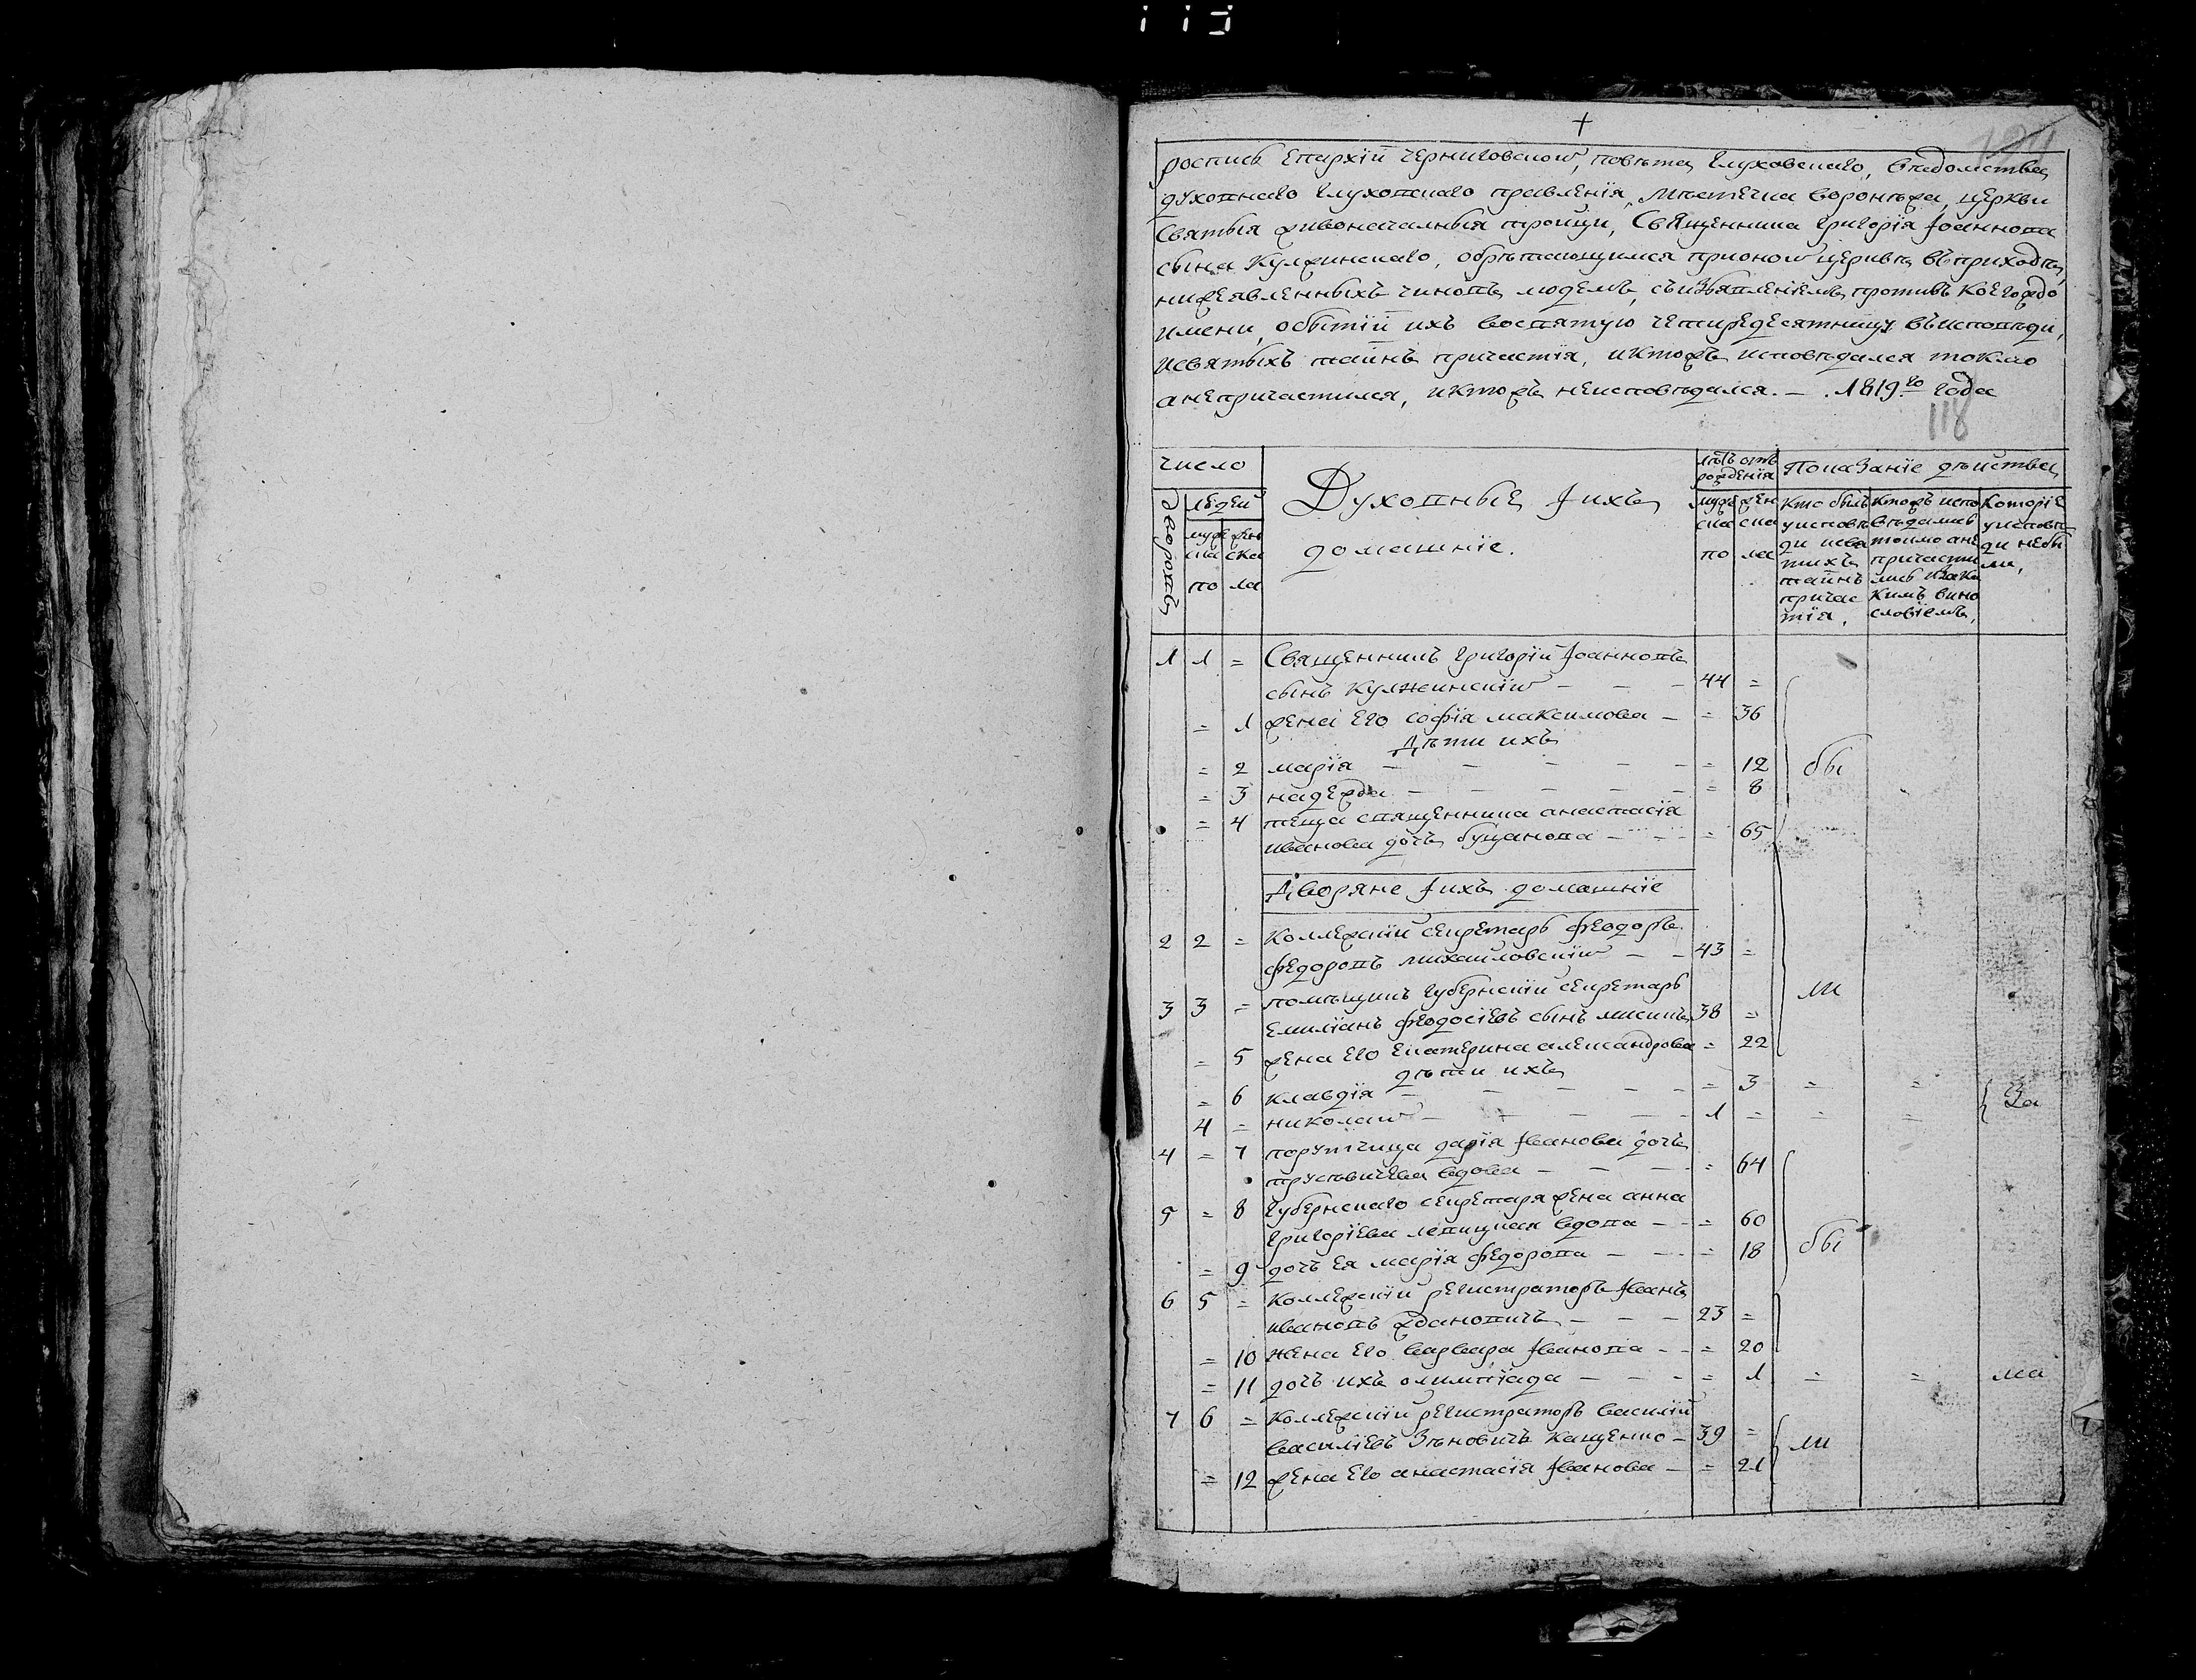 124
роспись Епархіи Черниговской, повѣта Глуховскаго, вѣдомства
духовнаго Глуховскаго правленія, мѣстечка Воронѣжа, церкви
Святыя живоначалныя тройцы, Священника Григорія Іоаннова
сына Кулжинскаго, обрѣтающимся при оной церквѣ въ приходѣ,
нижеявленныхъ чиновъ людемъ, съ изъявленіемъ противъ коегождо
имени, о бытіи ихъ во святую четиредесятницу въ исповѣди,
и святыхъ тайнъ причастія, и ктожъ исповѣдался токмо
а не причастился, и ктожъ не исповѣдался. — 1819го года
118
число
дворовъ
людей
муже ска
жен ска
по ла
Духовные и ихъ
домашніе.
лѣтъ отъ рожденія
муже ска
жен ска
по ла
Показаніе дѣйства
Кто былъ у исповѣди и святихъ тайнъ причастія,
Ктожъ исповѣдались токмо а не причастились и за каким винословіемъ,
Которіе у исповѣди не были,
1 1 = Священникъ Григорій Іоанновъ
сынъ Кулжинскій — — — 44 =
= 1 жена его софія максимова — = 36
Дѣти ихъ
= 2 марія — — — — — = 12 бы
= 3 надежда — — — — — = 8
= 4 теща священника анастасія
иванова дочь Бущанова — — — = 65
Дворяне и ихъ домашніе
2 2 = Коллежскій секретарь феодоръ
федоровъ михайловскій — — 43 =
3 3 = помѣщикъ губернскій секретарь ли
емиліанъ феодосіевъ сынъ 38 =
= 5 жена его екатерина александрова = 22
дѣти ихъ
= 6 клавдія — — — — — = 3 = = За
4 = николай — — — — — 1 = = =
4 = 7 порутчица дарія Іванова дочь
вдова — — — = 64
5 = 8 Губернскаго секретаря жена анна
григоріева вдова — — = 60
= 9 дочь ея марія федорова — — = 18 бы
6 5 = Коллежскій регистраторъ Іванъ
ивановъ ждановичъ — — — 23 =
= 10 жена его варвара Іванова — — = 20
= 11 дочь ихъ олимпіада — — — = 1 = = ма
7 6 = Коллежскій регистраторъ василій
василіевъ Зѣновичъ Кащенко — 39 = ли
= 12 жена его анастасія Іванова — = 21